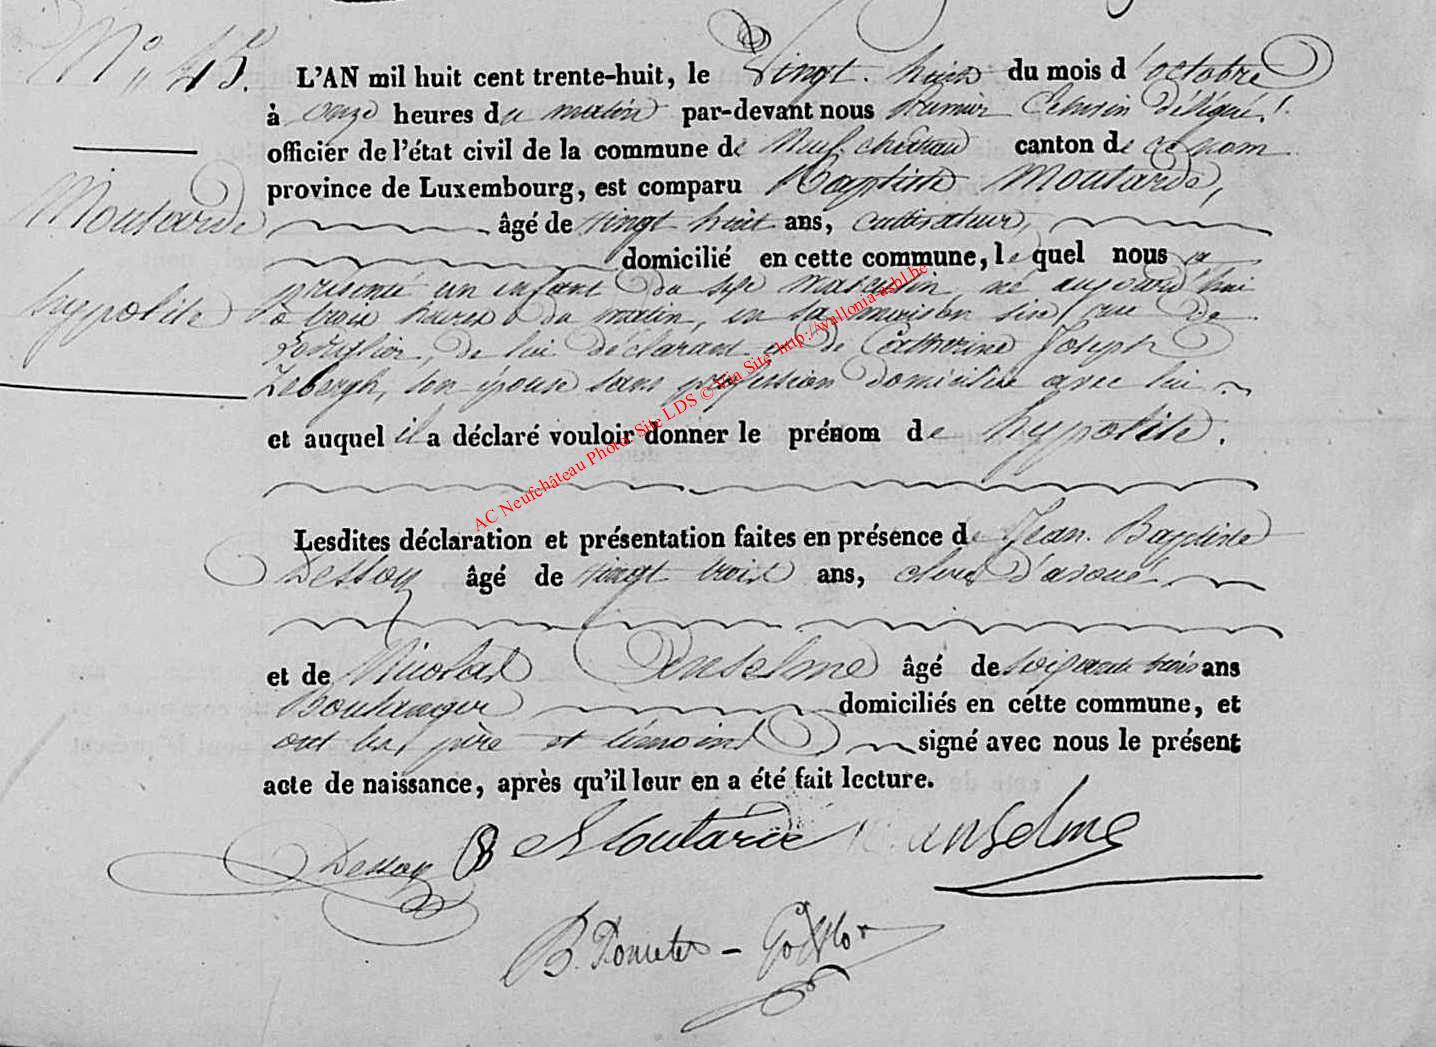 N° 45.
L'AN mil huit cent trente-huit, le Vingt-huit du mois d'octobre
à onze heures du matin par-devant nous Premier Echevin délégué,
officier de l'état civil de la commune de Neufchateau canton de ce nom
province de Luxembourg, est comparu Baptiste Moutarde,
Moutarde
âgé de vingt huit ans, cultivateur,
domicilié en cette commune, lequel nous a
hypolite
présenté un enfant du sexe masculin né aujourd'hui
à trois heures du matin, en sa maison sise rue de
de lui déclarant et de Catherine Joseph
son épouse sans profession domiciliée avec lui
et auquel il a déclaré vouloir donner le prénom de hypolite.
AC Neufchâteau Photo: Site LDS © Via Site http://wallonia-asbl.be
Lesdites déclaration et présentation faites en présence de Jean-Baptiste
Dessoy âgé de vingt trois ans, clerc d'avoué
et de Nicolas Anselme âgé de soixante trois ans
Boulanger domiciliés en cette commune, et
ont les père et témoins signé avec nous le présent
acte de naissance, après qu'il leur en a été fait lecture.
Dessoy B Moutarde N. anselme